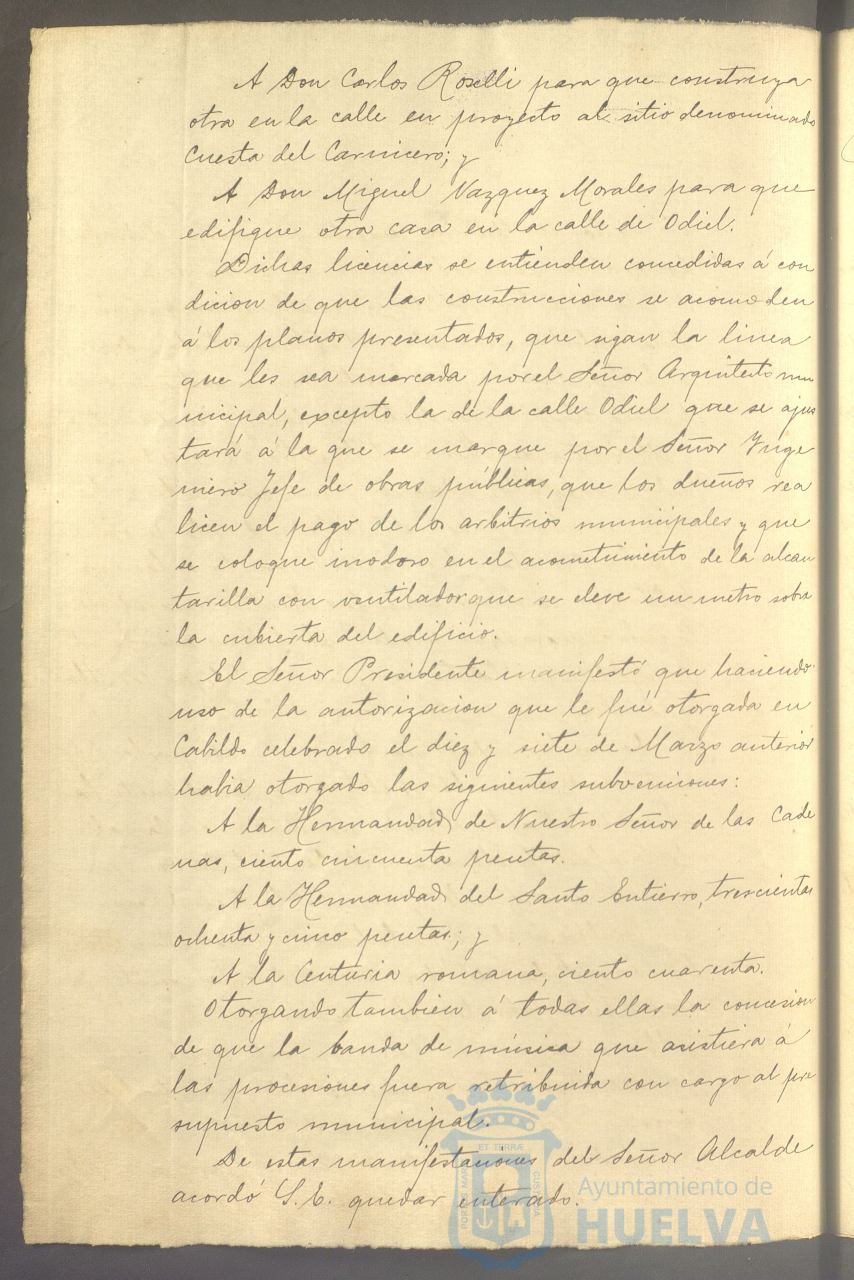 A Don Carlos Roselli para que construya
otra en la calle en proyecto al sitio denominado
Cuesta del Carnicero; y
A Don Miguel Vazquez Morales para que
edifique otra casa en la calle de Odiel.
Dichas licencias se entienden concedidas á con
dicion de que las construcciones se acomoden
á los planos presentados, que sigan la linea
que les sea marcada por el Señor Arquitecto mu
nicipal, excepto la de la calle Odiel que se ajus
tará á la que se marque por el Señor Inge
niero Jefe de obras públicas, que los dueños rea
licen el pago de los arbitrios municipales y que
se coloque inodoro en el acometimiento de la alcan
tarilla con ventilador que se eleve un metro sobre
la cubierta del edificio.
El Señor Presidente manifestó que haciendo
uso de la autorizacion que le fué otorgada en
Cabildo celebrado el diez y siete de Marzo anterior
habia otorgado las siguientes subvenciones:
A la Hermandad de Nuestro Señor de las Cade
nas, ciento cincuenta pesetas.
A la Hermandad del Santo Entierro, trescientas
ochenta y cinco pesetas; y
A la Centuria romana, ciento cuarenta.
Otorgando tambien á todas ellas la concesion
de que la banda de música que asistiera á
las procesiones fuera retribuida con cargo al pre
supuesto municipal.
De estas manifestaciones del Señor Alcalde
acordó S. E. quedar enterado.
ET TERRÆ
CUSTODIA
Ayuntamiento de
HUELVA